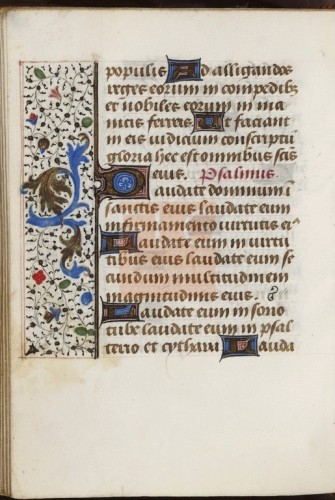 populis Ad alligandos
reges eorum in compedibȝ
et nobiles eorum in ma
nicis ferreis Ut faciant
in eis iudicium conscriptū
gloria hec est omnibus scīs
eius. Psalmus.
Laudate dominum ī
sanctis eius laudate eum
in firmamento virtutis eiꝰ
Laudate eum in virtu
tibus eius laudate eum se
cundum multitudinem
magnitudinis eius. &
Laudate eum in sono
tube laudate eum in psal
terio et cythara Lauda